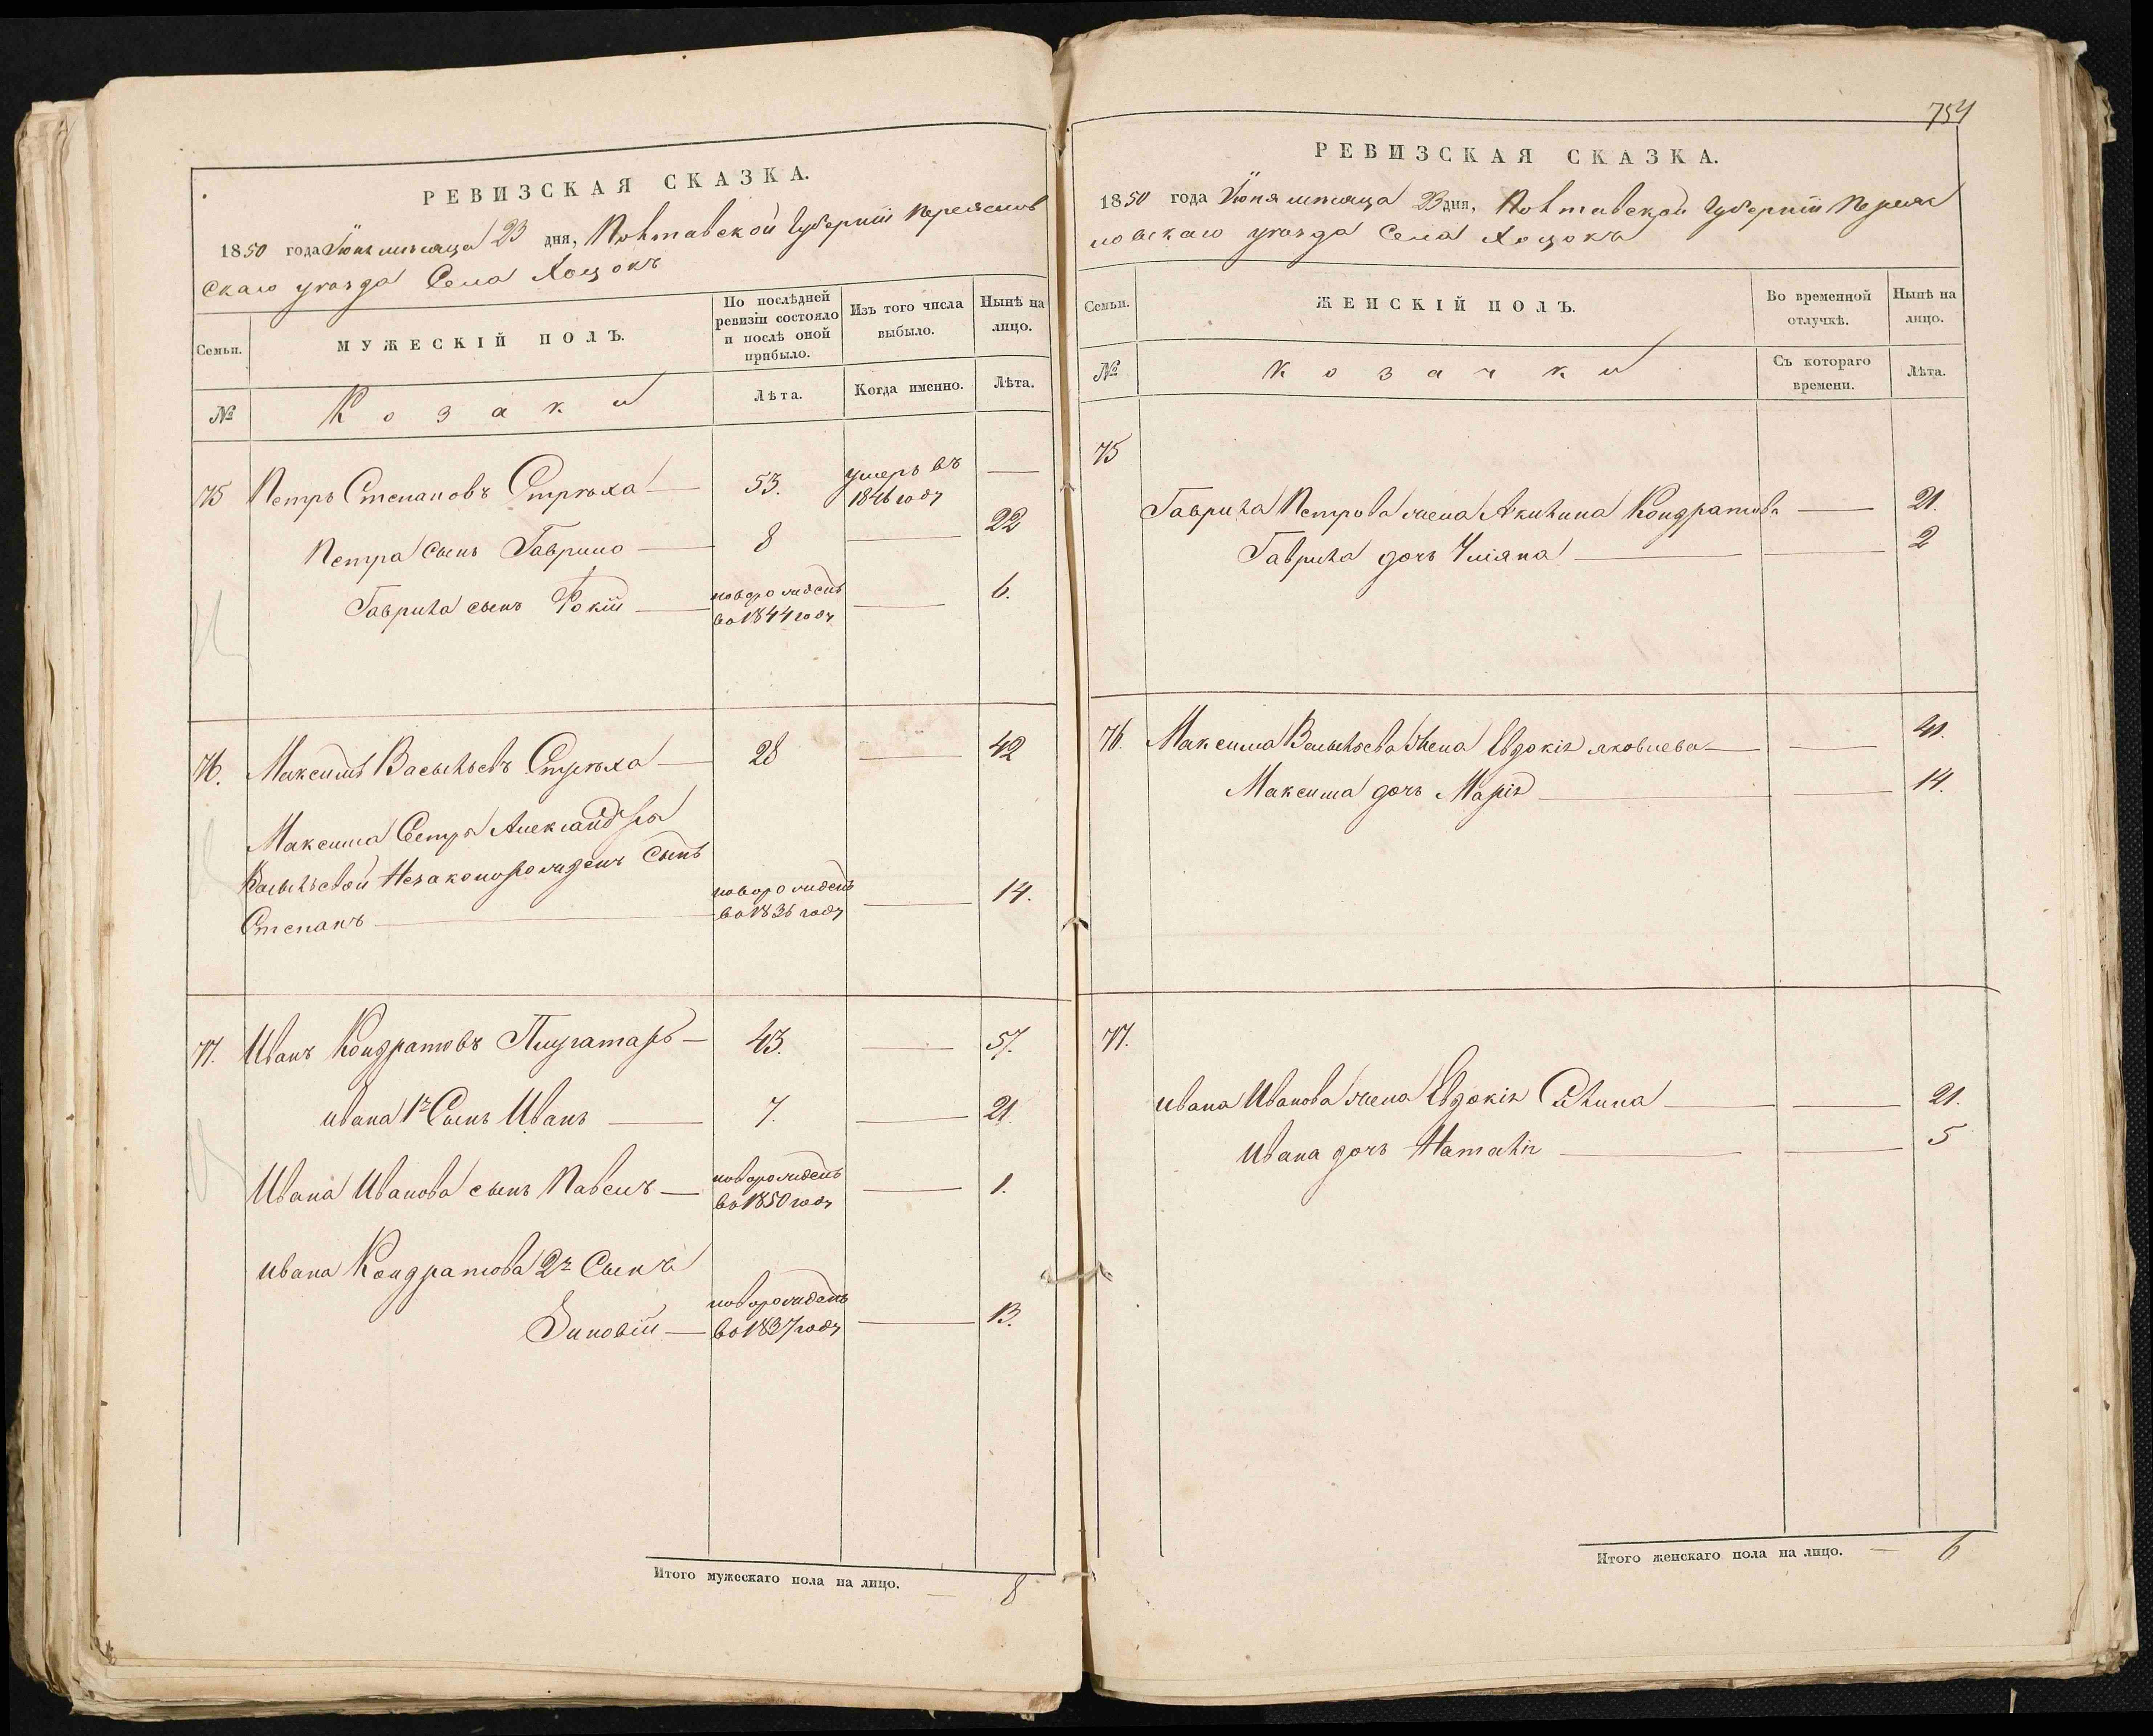 РЕВИЗСКАЯ СКАЗКА.
1850 года Іюня мѣсяца 23 дня, Полтавской Губерніи Переяслов
скаго уѣзда Села Хоцокъ
Семьи.
МУЖЕСКІЙ ПОЛЪ.
По послѣдней ревизіи состояло и послѣ оной прибыло.
Изъ того числа выбыло.
Нынѣ на лицо.
№
Козаки
Лѣта.
Когда именно.
Лѣта.
75 Петръ Степановъ Стрѣха — 53. умеръ въ 1846 году —
Петра сынъ Гаврило — 8 — 22
Гаврила сынъ Фокій — новорожденъ во 1844 году — 6.
76. Максимъ Васильевъ Стрѣха — 28 — 42
Максима Сестры Александры
Васильевой Незаконорожденъ Сынъ
Степанъ — новорожденъ во 1836 году — 14.
77. Иванъ Кондратовъ Плугатарь — 43. — 57.
Ивана 1й Сынъ Иванъ — 7. — 21.
Ивана Иванова сынъ Павелъ — новорожденъ во 1850 году — 1.
Ивана Кондратова 2й Сынъ
Зиновій — новорожденъ во 1837 году — 13.
Итого мужескаго пола на лицо. — 8
754
РЕВИЗСКАЯ СКАЗКА.
1850 года Іюня мѣсяца 23 дня, Полтавской Губерніи Переяс
ловскаго уѣзда Села Хоцокъ
Семьи.
ЖЕНСКІЙ ПОЛЪ.
Во временной отлучкѣ.
Нынѣ на лицо.
№
Козачки
Съ котораго времени.
Лѣта.
75
Гаврила Петрова жена Акилина Кондратова — 21.
Гаврила дочь Уліяна — — 2
76. Максима Васильева жена Евдокія Яковлева — — 41.
Максима дочь Марія — — 14.
77.
Ивана Иванова жена Евдокія Силина — — 21.
Ивана дочь Наталія — — 5
Итого женскаго пола на лицо. — 6